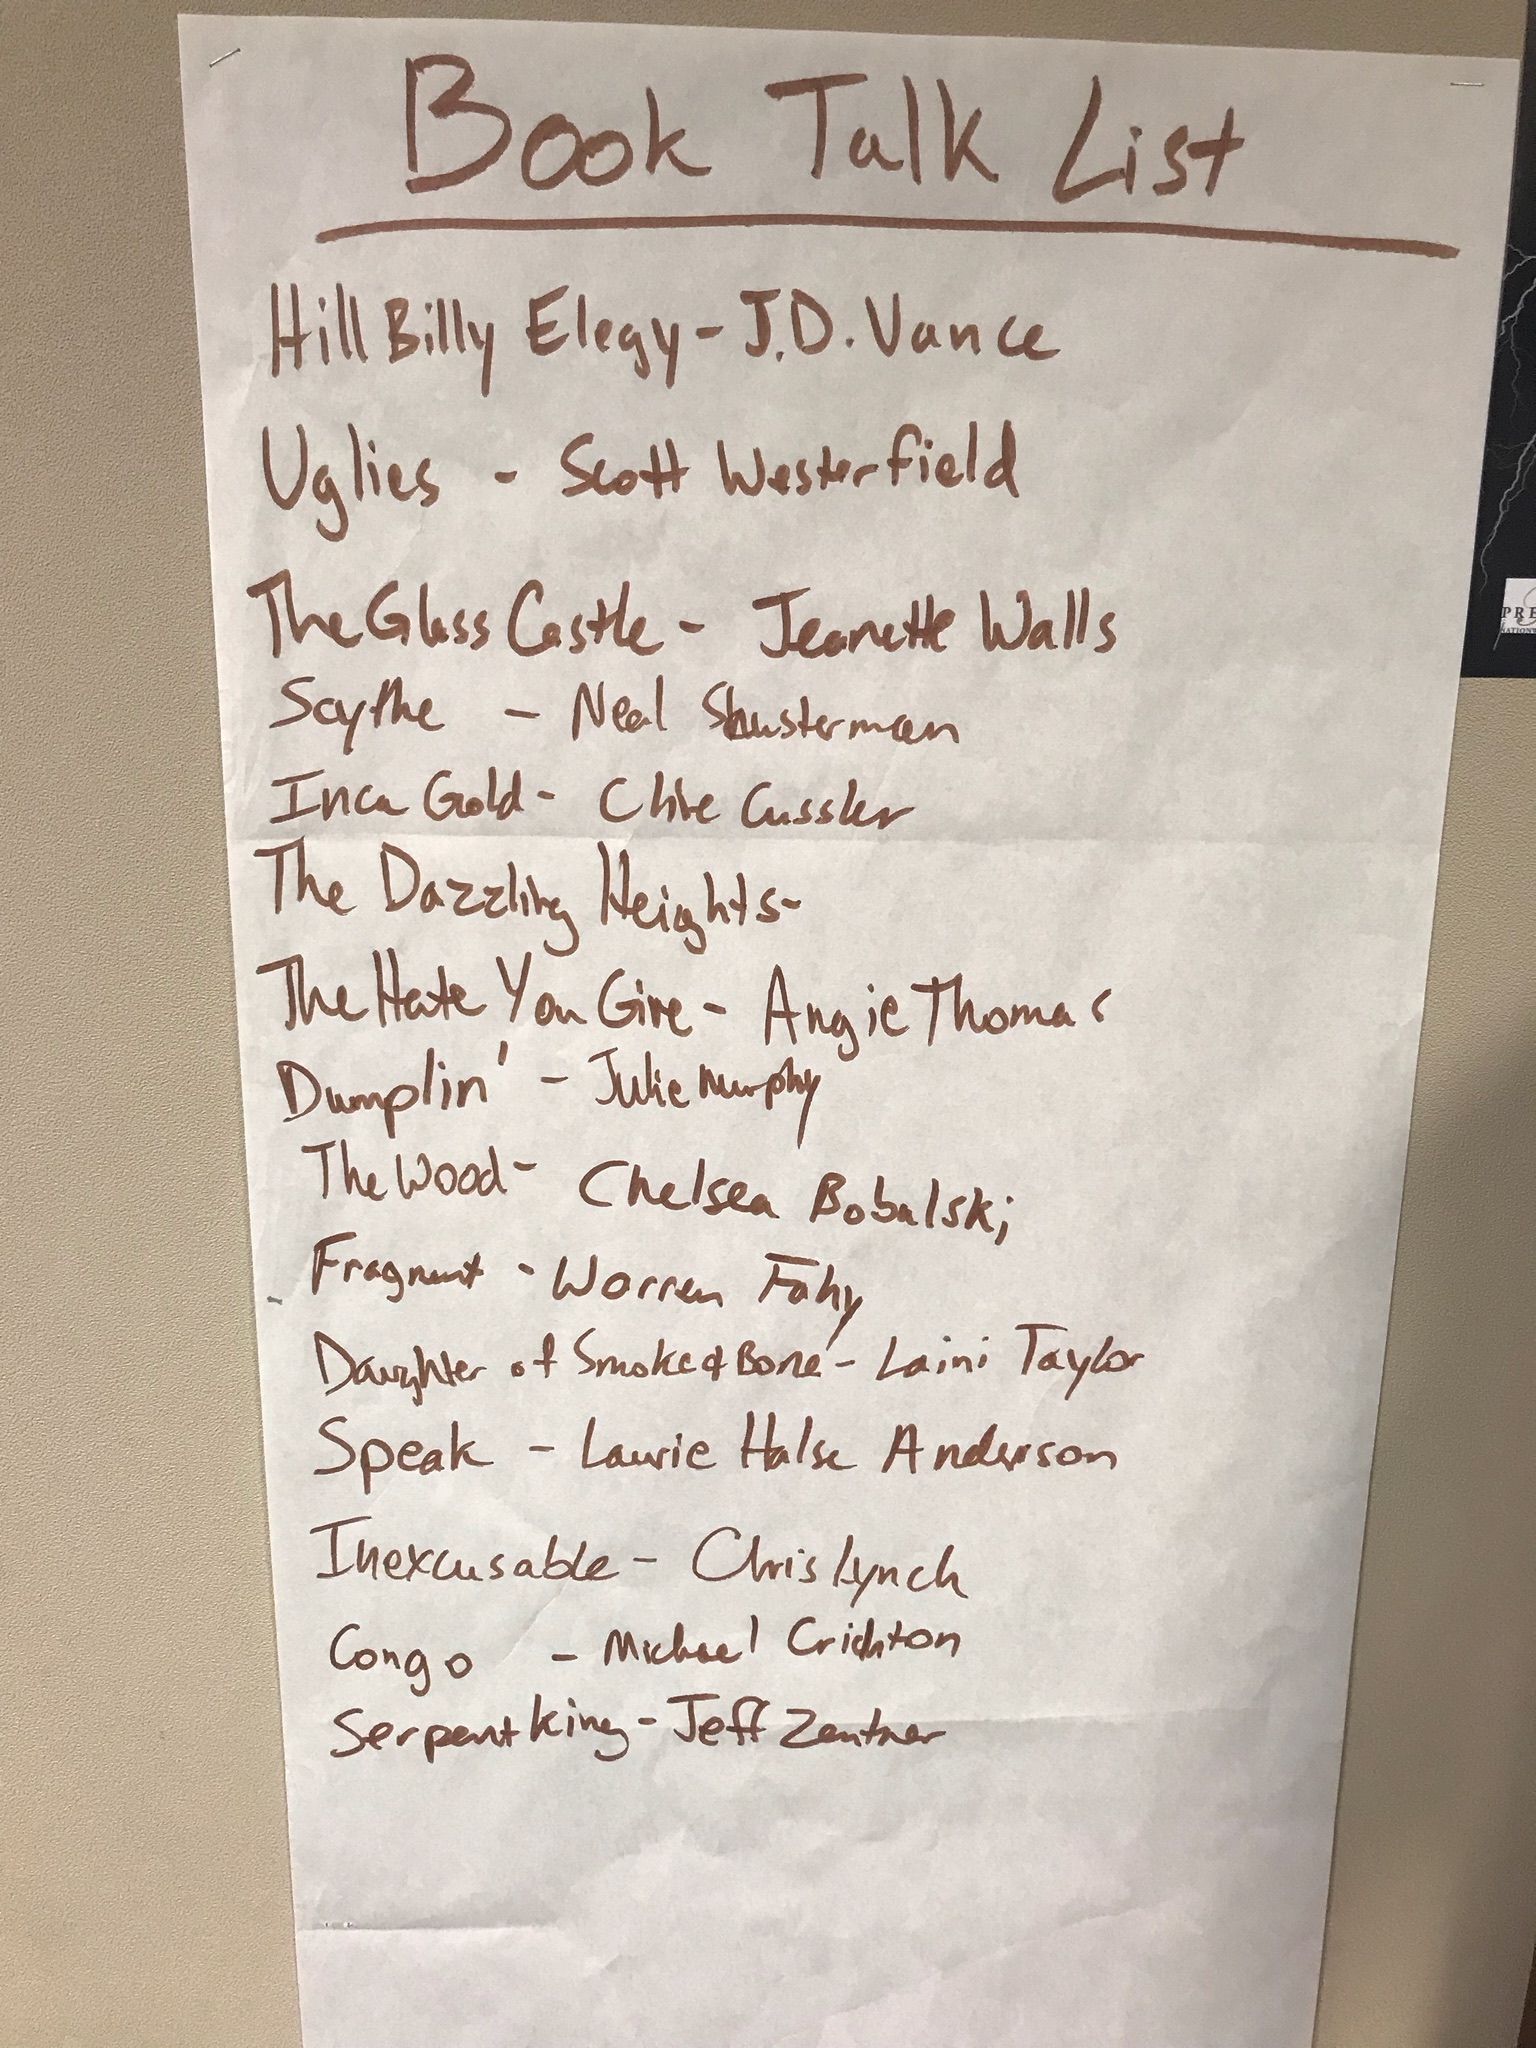 Book Talk List
Hill Billy Elegy - J.D. Vance
Uglies - Scott Westerfield
The Glass Castle - Jeanette Walls
Scythe - Neal Shusterman
Inca Gold - Clive Cussler
The Dazzling Heights-
The Hate You Give - Angie Thomas
Dumplin' - Julie Murphy
The Wood - Chelsea Bobulski
Fragment - Warren Fahy
Daughter of Smoke & Bone - Laini Taylor
Speak - Laurie Halse Anderson
Inexcusable - Chris Lynch
Congo - Michael Crichton
Serpent King - Jeff Zentner
PRE